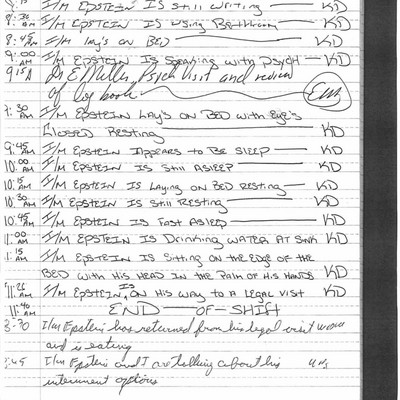 I/M EPSTEIN IS STILL WRITING KD
8:30 AM I/M EPSTEIN IS USING BATHROOM KD
8:45 AM I/M lay's on BED KD
9:00 AM I/M EPSTEIN IS SPEAKING WITH PSYCH KD
915A Dr E Miller, Psych Visit and review
of log book
9:30 AM I/M EPSTEIN LAY'S ON BED WITH EYE'S
CLOSED RESTING KD
9:45 AM I/M EPSTEIN APPEARS TO BE SLEEP KD
10:00 AM I/M EPSTEIN IS STILL ASLEEP KD
10:15 AM I/M EPSTEIN IS LAYING ON BED RESTING KD
10:30 AM I/M EPSTEIN IS STILL RESTING KD
10:45 AM I/M EPSTEIN IS FAST ASLEEP KD
11:00 AM I/M EPSTEIN IS DRINKING WATER AT SINK KD
:15 AM I/M EPSTEIN IS SITTING ON THE EDGE OF THE
BED WITH HIS HEAD IN THE PALM OF HIS HANDS KD
AM I/M EPSTEIN IS ON HIS WAY TO A LEGAL VISIT KD
11:40 AM END OF SHIFT
I/m Epstein has returned from his legal visit
and is eating
I/m Epstein and I are talking about his
internment options